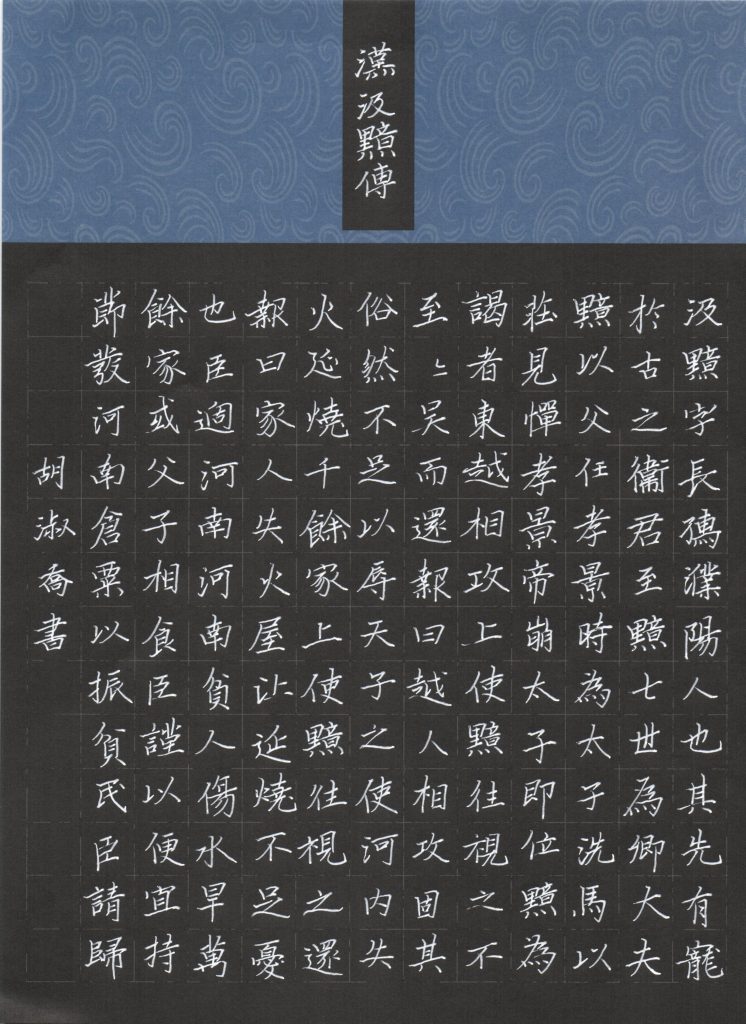 漢汲黯傳
汲黯字長孺濮陽人也其先有寵
於古之衞君至黯七世為卿大夫
黯以父任孝景時為太子洗馬以
莊見憚孝景帝崩太子即位黯為
謁者東越相攻上使黯往視之不
至〻吳而還報曰越人相攻固其
俗然不足以辱天子之使河内失
火延燒千餘家上使黯往視之還
報曰家人失火屋比延燒不足憂
也臣過河南河南貧人傷水旱萬
餘家或父子相食臣謹以便宜持
節發河南倉粟以振貧民臣請歸
胡淑喬書